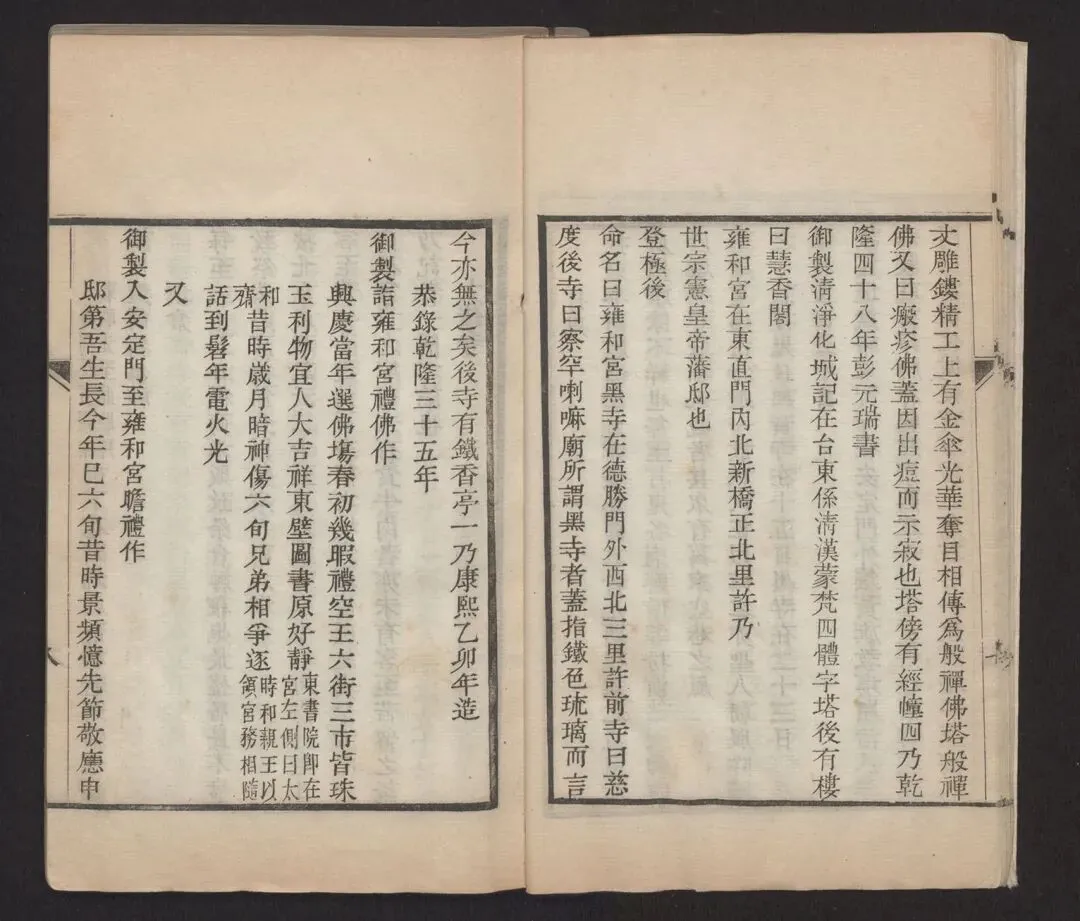 丈雕鏤精工上有金傘光華奪目相傳爲般禪佛塔般禪
佛又曰瘢疹佛蓋因出痘而示寂也塔傍有經幢四乃乾
隆四十八年彭元瑞書
御製清淨化城記在台東係清漢蒙梵四體字塔後有樓
曰慧香閣
雍和宮在東直門內北新橋正北里許乃
世宗憲皇帝藩邸也
登極後
命名曰雍和宮黑寺在德勝門外西北三里許前寺曰慈
度後寺曰察罕喇嘛廟所謂黑寺者蓋指鐵色琉璃而言
今亦無之矣後寺有鐵香亭一乃康熙乙卯年造
恭錄乾隆三十五年
御製詣雍和宮禮佛作
興慶當年選佛塲春初幾暇禮空王六街三市皆珠
玉利物宜人大吉祥東壁圖書原好靜東書院卽在宮左側曰太
和齋昔時歲月暗神傷六旬兄弟相爭逐時和親王以領宮務相隨
話到髫年電火光
又
御製入安定門至雍和宮瞻禮作
邸第吾生長今年巳六旬昔時景頻憶先節敬應申